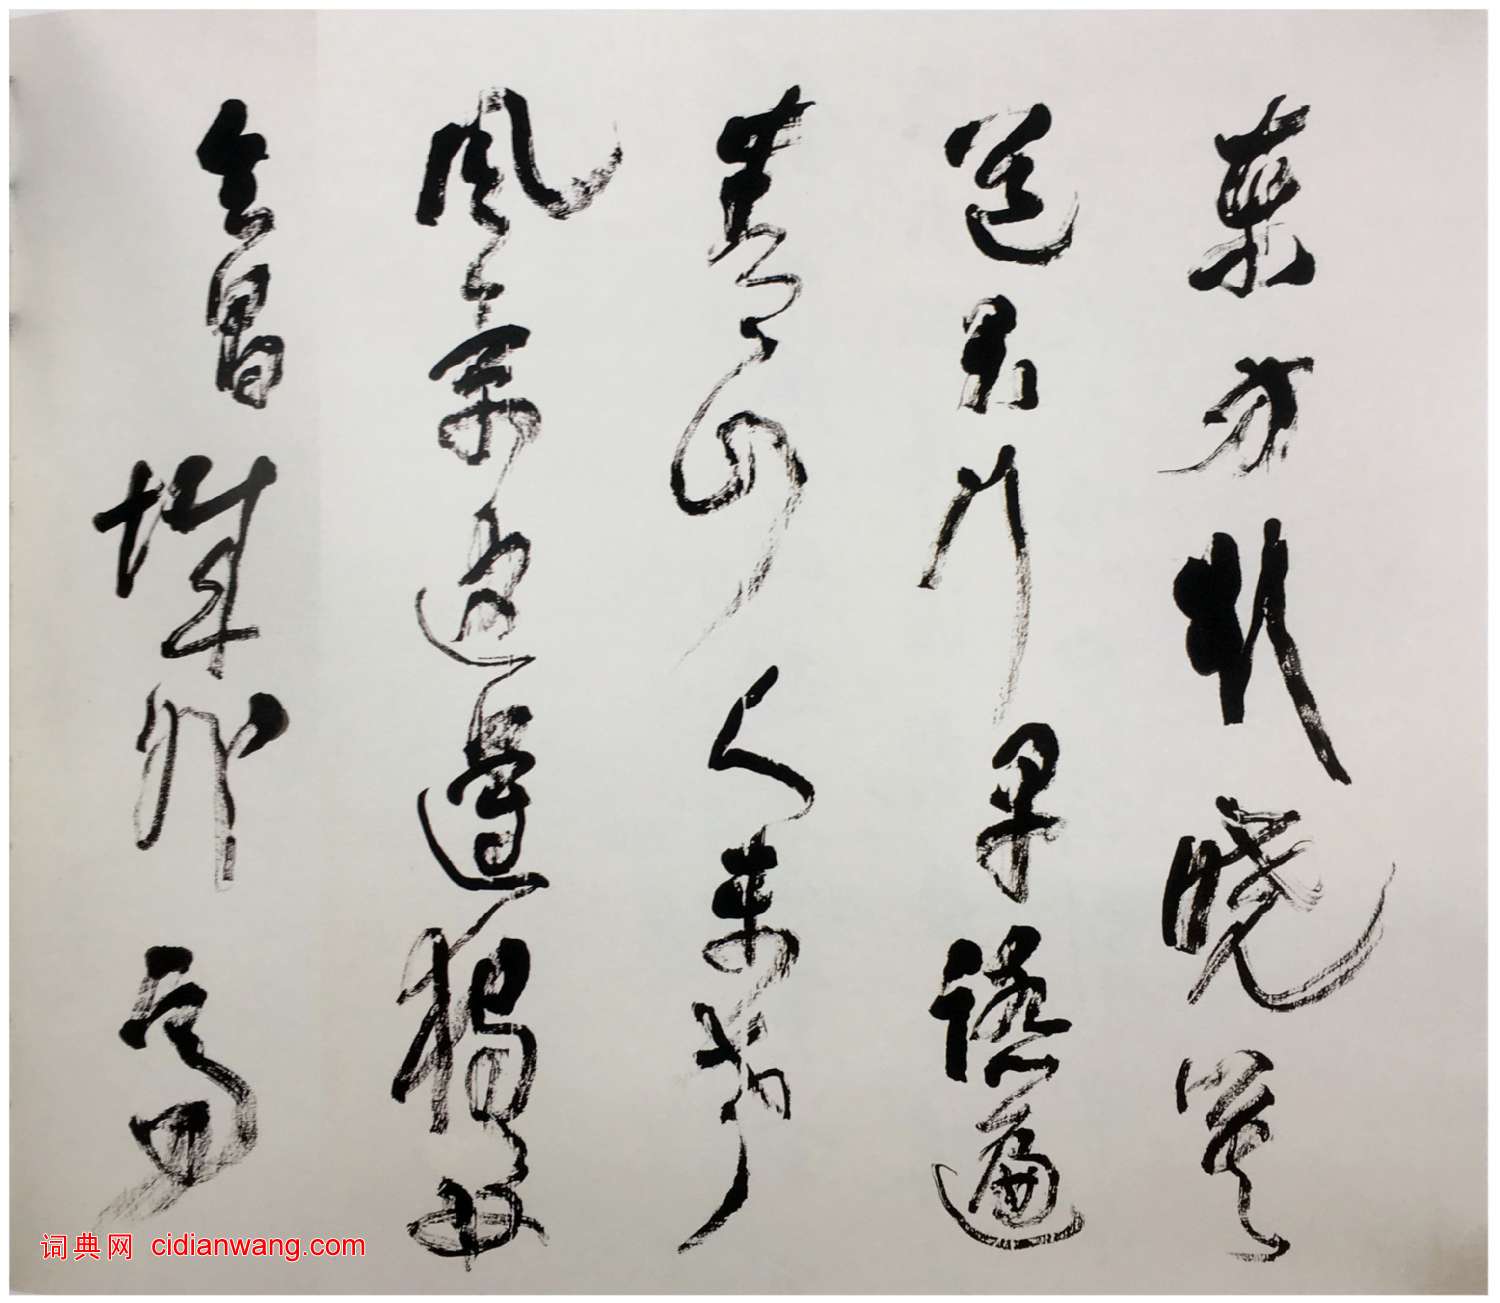 東方欲曉莫
道君行早踏遍
青山人未老
風景這邊獨好
會昌城外高
词典网 cidianwang.com